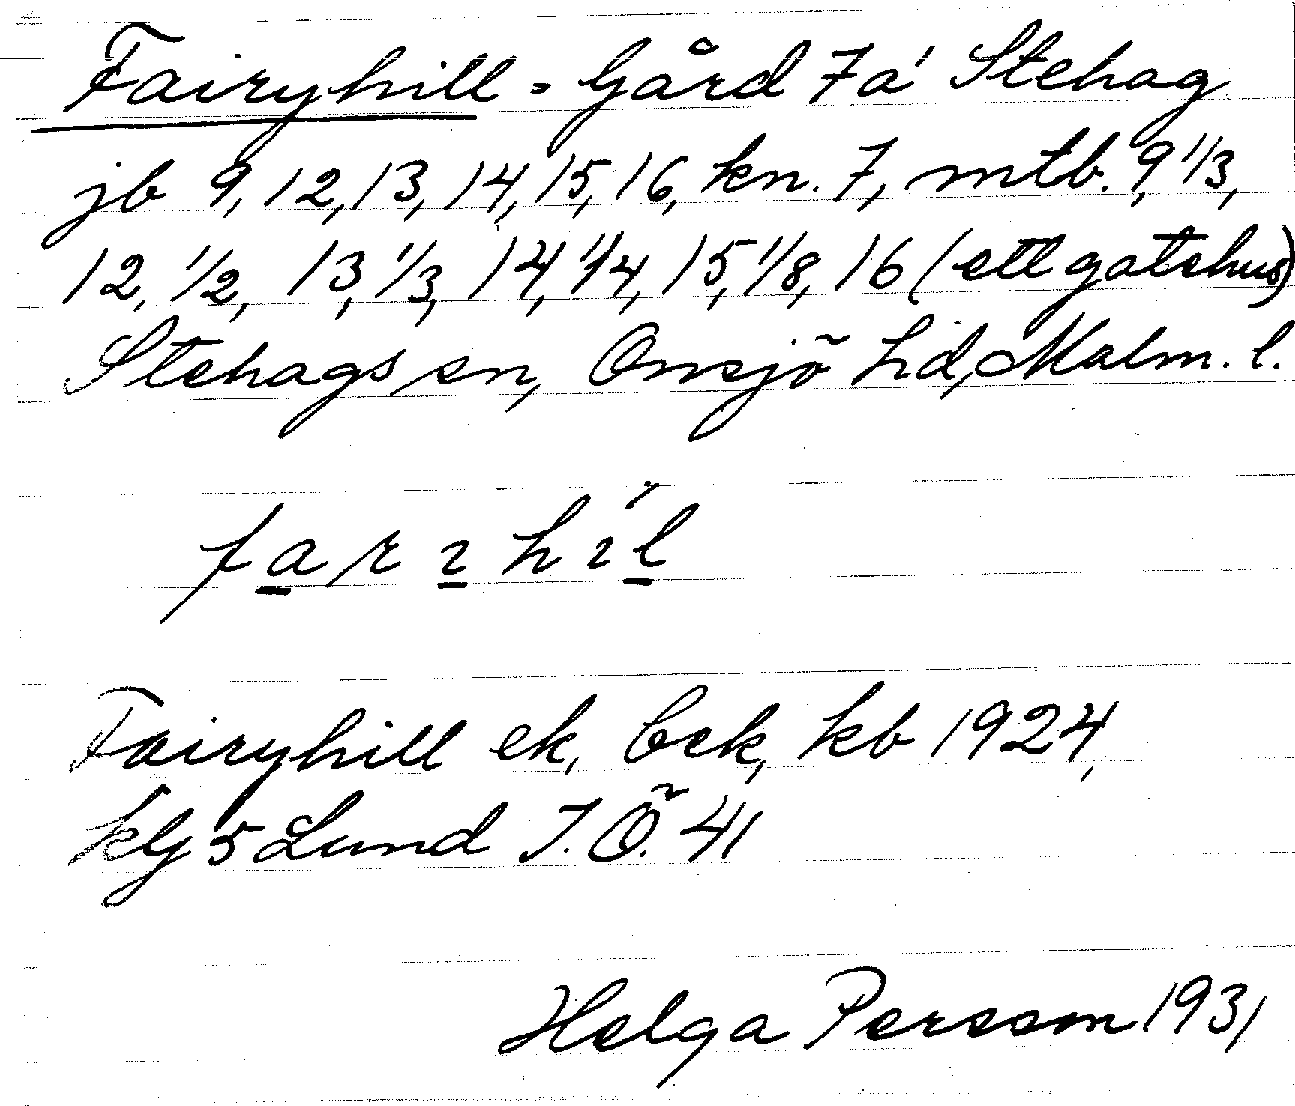 Fairyhill = Gård 7a' Stehag
jb 9, 12, 13, 14, 15, 16, kn. 7, mtb. 9, 1/3,
12, 1/2, 13, 1/3, 14, 1/4, 15, 1/8, 16 (ett gatehus)
Stehags sn, Onsjö hd, Malm. l.
farıhı́l
Fairyhill ek. bek, kb 1924,
klg 5 Lund J. Ö. 41
Helga Persson 1931